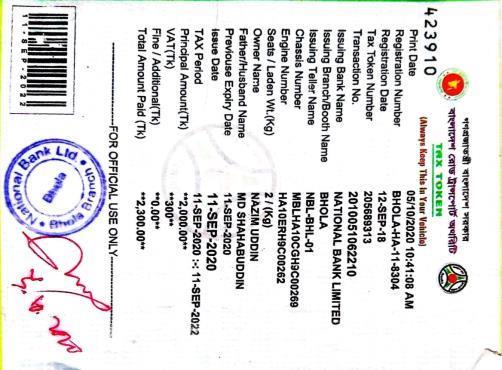 গণপ্রজাতন্ত্রী বাংলাদেশ সরকার
বাংলাদেশ রোড ট্রান্সপোর্ট অথরিটি
TAX TOKEN
(Always Keep This in Your Vehicle)
423910
Print Date 05/10/2020 10:41:08 AM
Registration Number BHOLA-HA-11-8304
Registration Date 12-SEP-18
Tax Token Number 205689313
Transaction No. 2010051062210
Issuing Bank Name NATIONAL BANK LIMITED
Issuing Branch/Booth Name BHOLA
Issuing Teller Name NBL-BHL-01
Chassis Number MBLHA10CGH9C00269
Engine Number HA10ERH9C00262
Seats / Laden Wt.(Kg) 2 / (Kg)
Owner Name NAZIM UDDIN
Father/Husband Name MD SHAHABUDDIN
Previouse Expiry Date 11-SEP-2020
Issue Date 11-SEP-2020
TAX Period 11-SEP-2020 >< 11-SEP-2022
Principal Amount(Tk) **2,000.00**
VAT(Tk) **300**
Fine / Additional(Tk) **0.00**
Total Amount Paid (Tk) **2,300.00**
FOR OFFICIAL USE ONLY
11-SEP-2022
National Bank Ltd.
Bhola
Bhola Branch